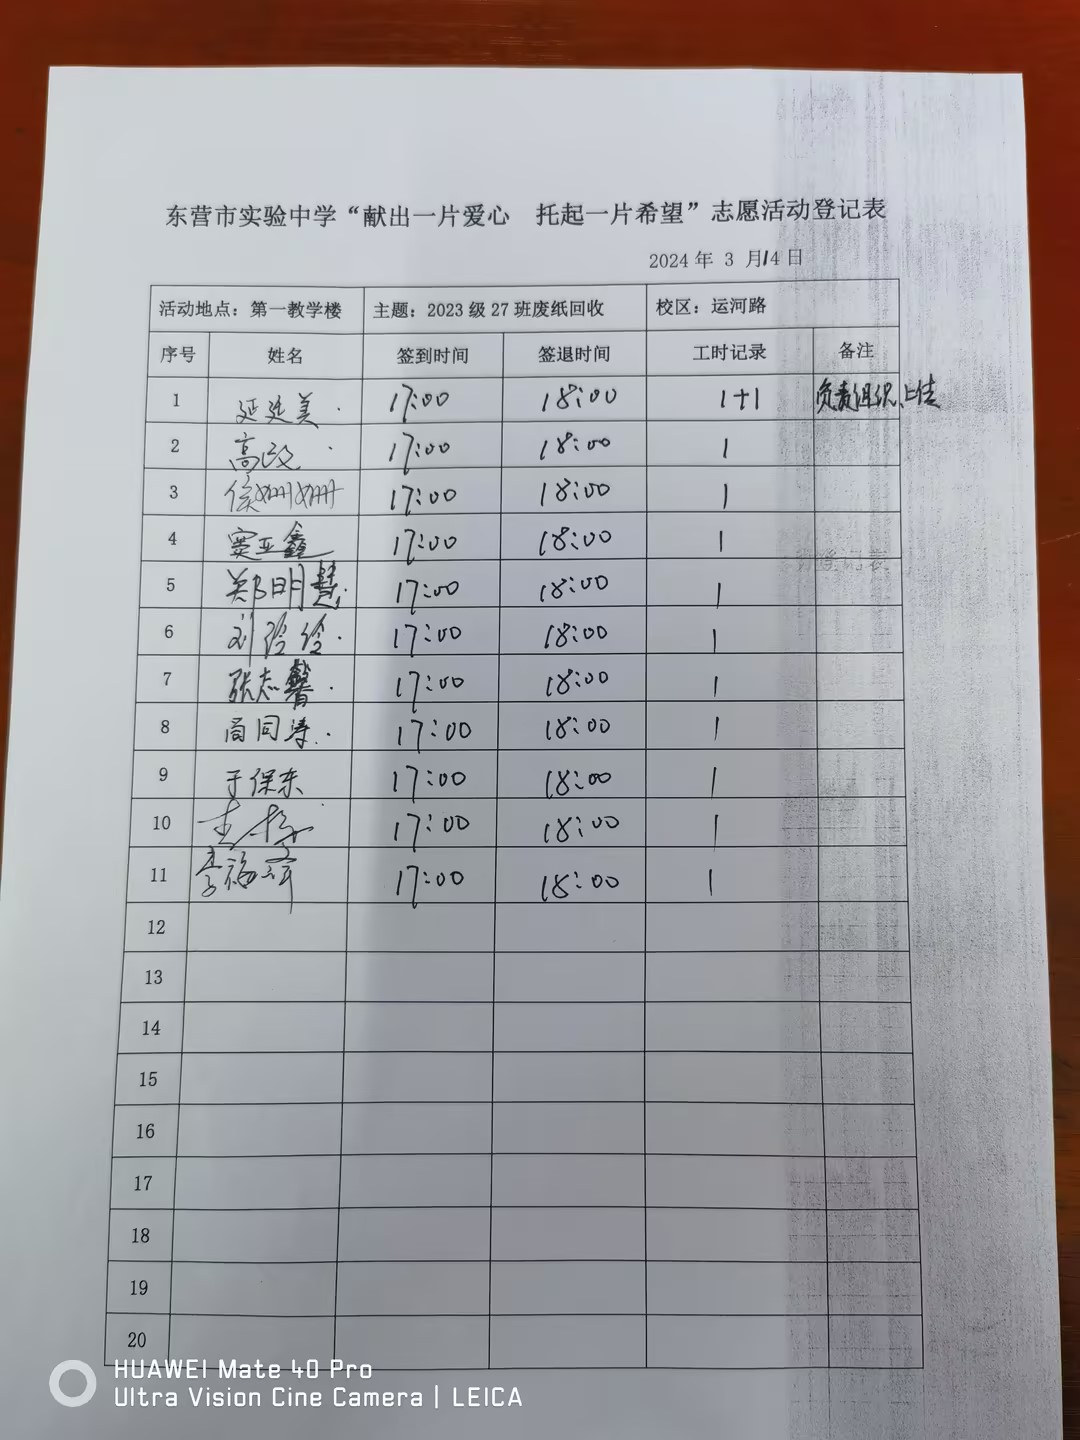 东营市实验中学“献出一片爱心 托起一片希望”志愿活动登记表
2024 年 3 月14 日
活动地点：第一教学楼 主题：2023 级 27 班废纸回收 校区：运河路
序号 姓名 签到时间 签退时间 工时记录 备注
1 延延美 17:00 18:00 1+1 负责组织、上传
2 高政 17:00 18:00 1
3 侯姗姗 17:00 18:00 1
4 窦亚鑫 17:00 18:00 1
5 郑明慧 17:00 18:00 1
6 刘玲玲 17:00 18:00 1
7 张志馨 17:00 18:00 1
8 同涛 17:00 18:00 1
9 于保东 17:00 18:00 1
10 17:00 18:00 1
11 李福军 17:00 18:00 1
12
13
14
15
16
17
18
19
20
HUAWEI Mate 40 Pro
Ultra Vision Cine Camera | LEICA